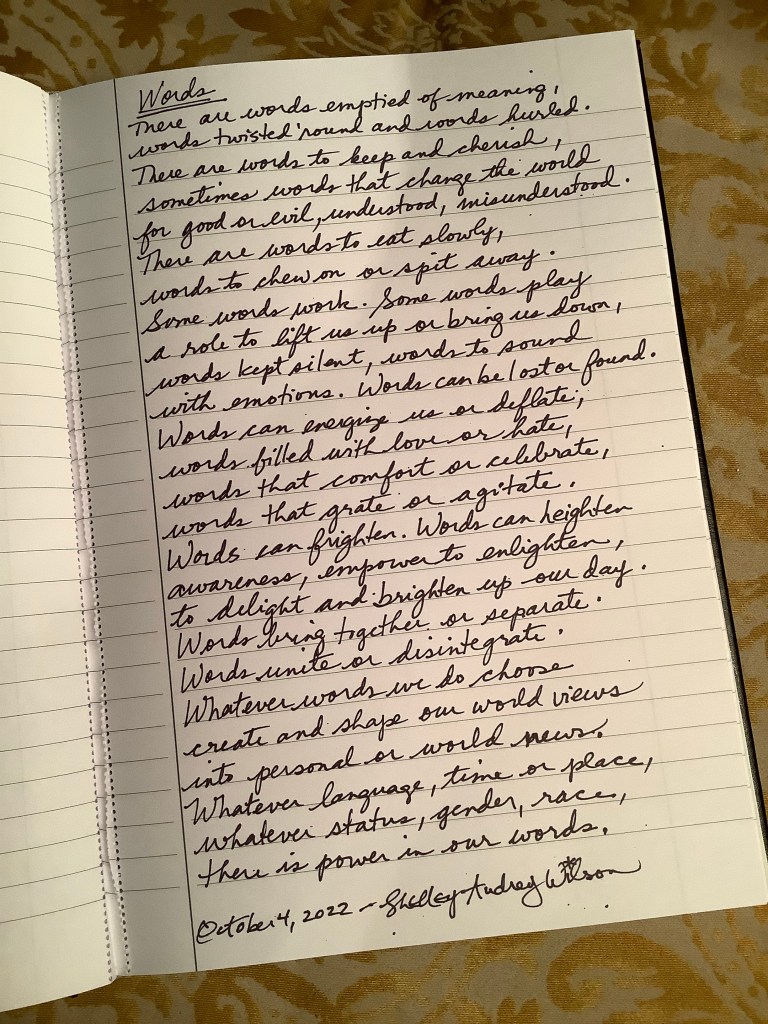 Words
There are words emptied of meaning,
words twisted 'round and words hurled.
There are words to keep and cherish,
sometimes words that change the world
for good or evil, understood, misunderstood.
There are words to eat slowly,
words to chew on or spit away.
Some words work. Some words play
a role to lift us up or bring us down,
words kept silent, words to sound
with emotions. Words can be lost or found.
Words can energize us or deflate,
words filled with love or hate,
words that comfort or celebrate,
words that grate or agitate.
Words can frighten. Words can heighten
awareness, empower to enlighten,
to delight and brighten up our day.
Words bring together or separate.
Words unite or disintegrate.
Whatever words we do choose
create and shape our world views
into personal or world news.
Whatever language, time or place,
whatever status, gender, race,
there is power in our words.
October 4, 2022 - Shelley Audrey Wilson